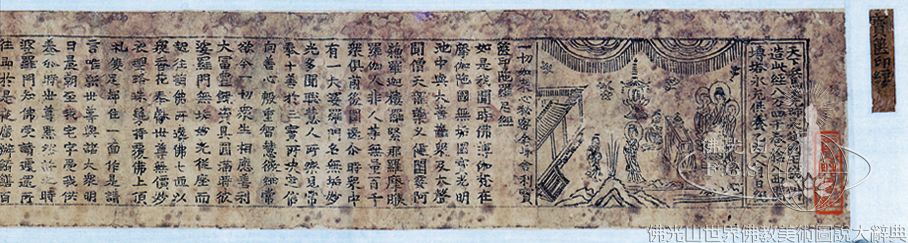 寶篋印經
天下兵馬大元帥吳越國王錢俶
造此經八万四千卷捨入西關
塼塔永充供養乙亥八月日紀
一切如來心祕密全身舍利寶
篋印陀羅尼經
如是我聞一時佛薄伽梵在
摩伽陀國無垢園寶光明
池中與大菩薩衆及大聲
聞僧天龍藥叉健闥婆阿
蘇羅迦樓羅緊那羅摩睺
羅伽人非人等無量百千
衆俱前後圍繞尒時衆中
有一大婆羅門名無垢妙
光多聞聰慧人所樂見常
奉十善於三寶所決定信
向善心殷重智慧微細常
欲令一切衆生相應善利
大富豐饒資具圓滿時彼
婆羅門無垢妙光從座而
起往詣佛所遶佛七匝以
衆香花奉獻世尊無價妙
衣瓔珞珠鬘持覆佛上頂
礼雙足却住一面作是請
言唯願世尊與諸大衆明
日晨朝至我宅中受我供
養尒時世尊默然許之時
婆羅門知佛受請遽還所
住即於是夜廣辦餚饍百
佛光山世界佛教美術圖說大辭典